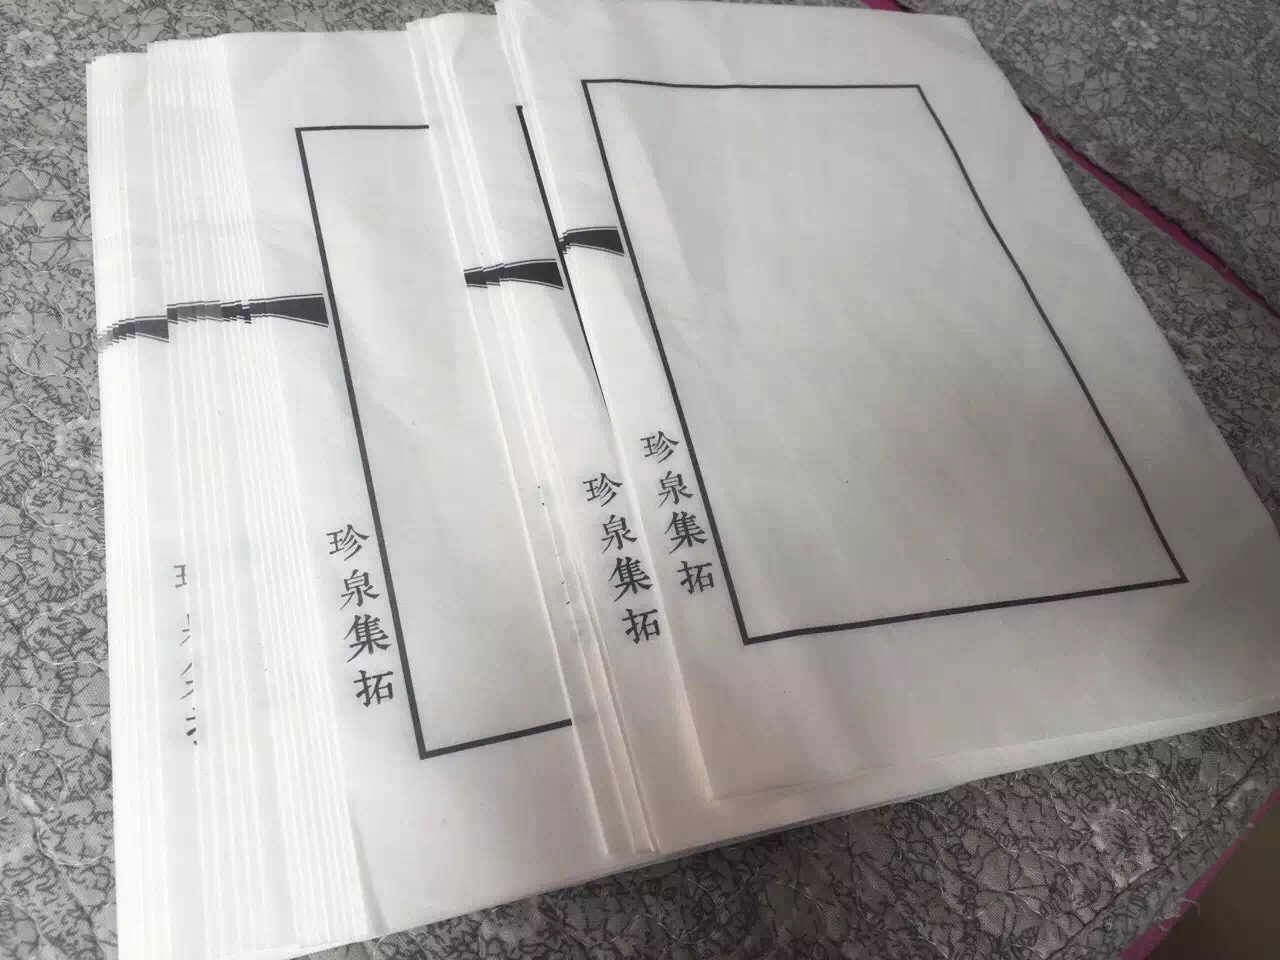 珍泉集拓
珍泉集拓
珍泉集拓